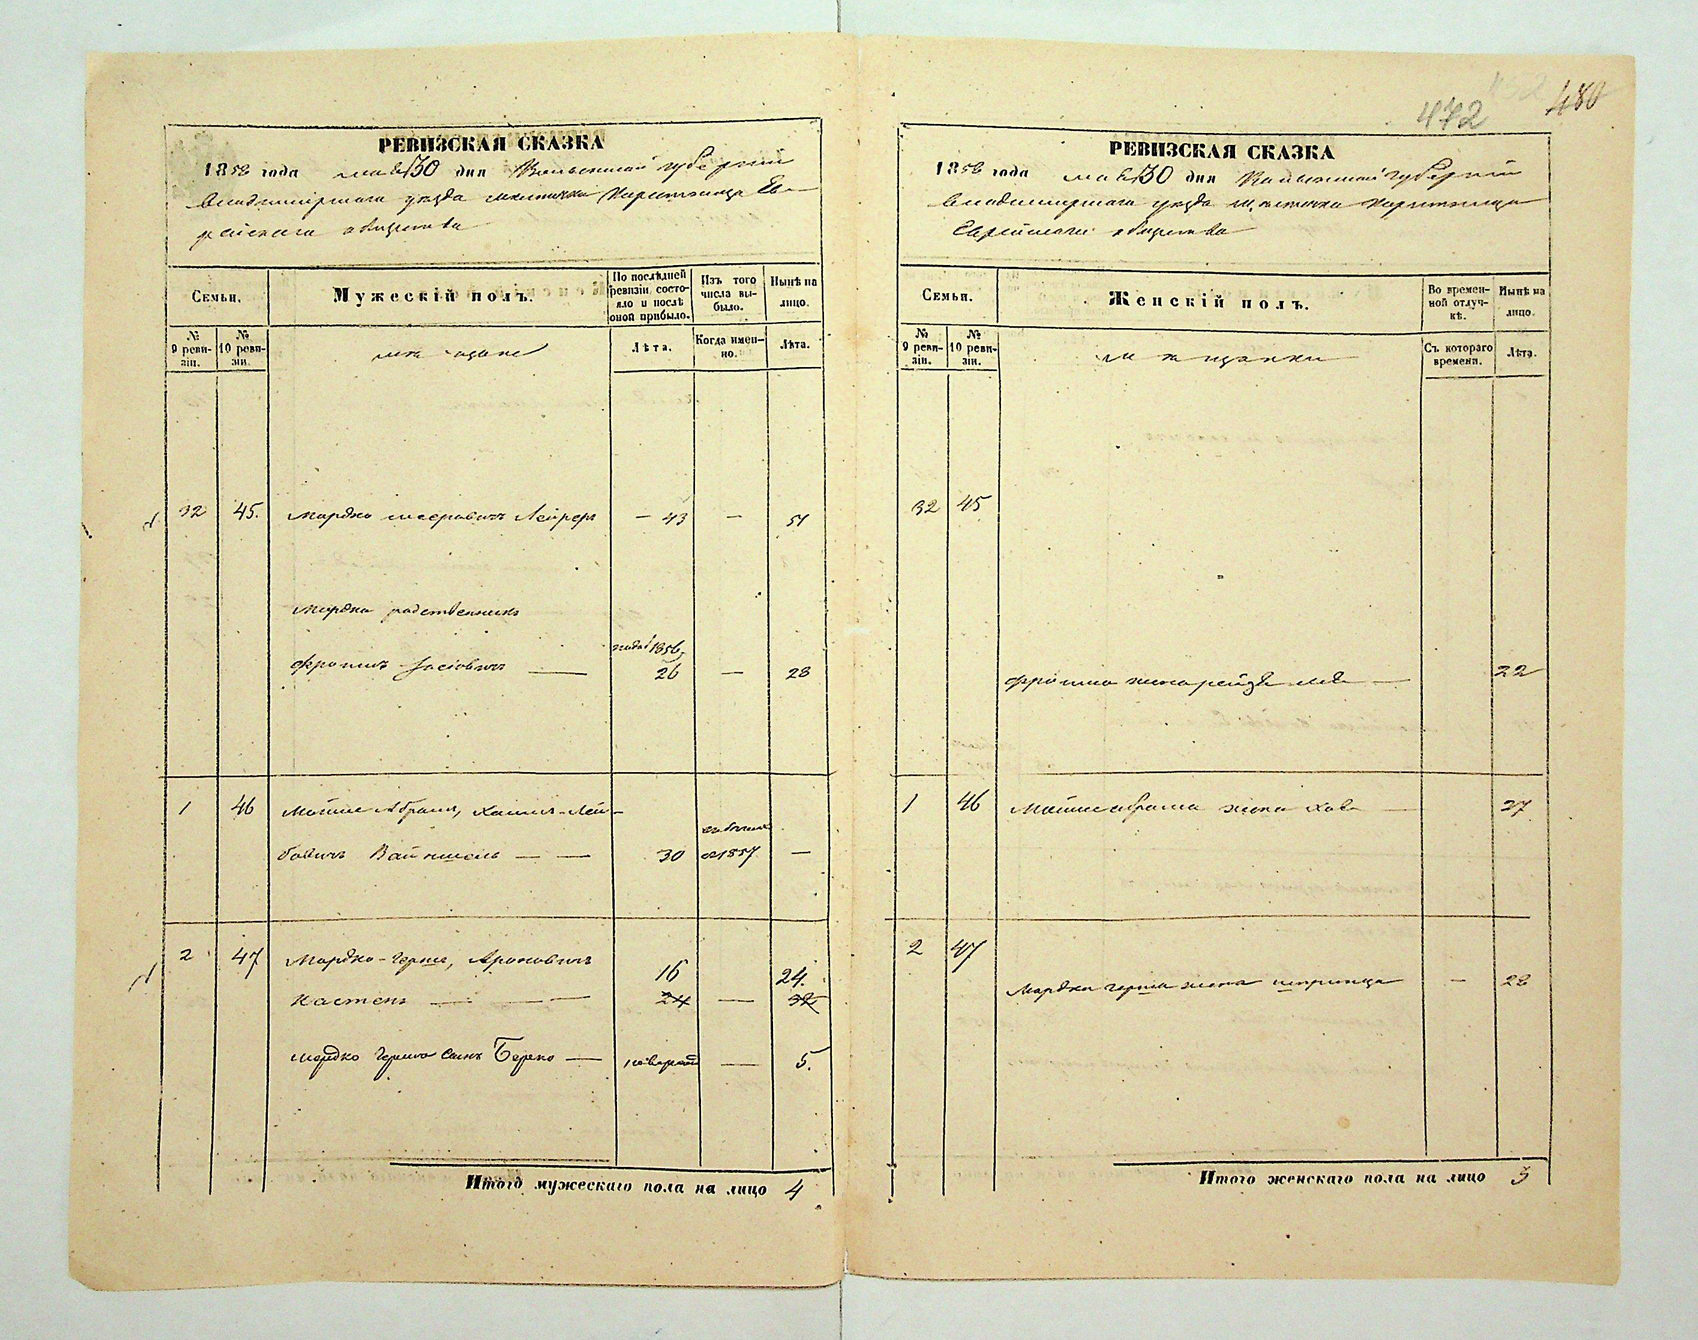 472
480
РЕВИЗСКАЯ СКАЗКА
1858 года мая 30 дня Волынской губернии
Владимірскаго уѣзда мѣстечка Ев-
рейскаго общества
Семьи.
Мужескій полъ.
По послѣдней ревизіи состо-яло и послѣ оной прибыло.
Изъ того числа вы-было.
Нынѣ на лицо.
№ 9 реви-зіи.
№ 10 реви-зіи.
мѣщане
Лѣта.
Когда имен-но.
Лѣта.
32 45. Мордко Меерович Лейрер — 43 — 51
Мордка родственникъ
1856
Фроимъ Іосіовичъ — 26 — 28
1 46 Мойше Абрамъ, Хаимъ-Лей-
бовичъ Вайншель — — 30 1857 —
2 47 Мордко-Герше, Ароновичъ 16 24.
Кастенъ — — — 24 — 32
Мордко Герша сынъ Берко — — 5.
Итого мужескаго пола на лицо 4
РЕВИЗСКАЯ СКАЗКА
1858 года мая 30 дня Волынской губерніи
Владимірскаго уѣзда мѣстечка
Еврейскаго общества
Семьи.
Женскій полъ.
Во времен-ной отлуч-кѣ.
Нынѣ на лицо.
№ 9 реви-зіи.
№ 10 реви-зіи.
мѣщанки
Съ котораго времени.
Лѣта.
32 45
Фроима жена Рейзя — 22
1 46 Мойше Абрама жена Хава — 27
2 47
Мордка Герша жена Шпринца — 28
Итого женскаго пола на лицо 3